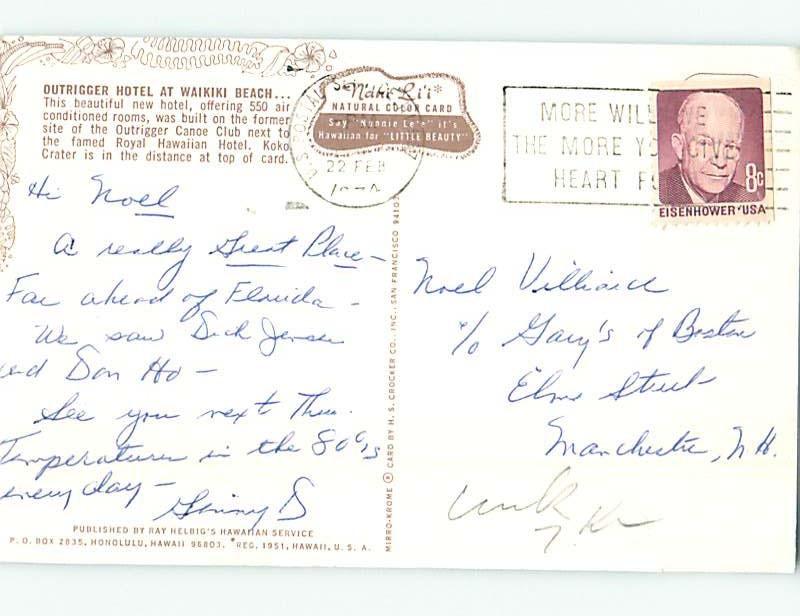 OUTRIGGER HOTEL AT WAIKIKI BEACH...
This beautiful new hotel, offering 550 air
conditioned rooms, was built on the former
site of the Outrigger Canoe Club next to
the famed Royal Hawaiian Hotel. Koko
Crater is in the distance at top of card.
"Nani Li'i*
NATURAL COLOR CARD
Say "Nannie Lee" it's
Hawaiian for "LITTLE BEAUTY"
U.S. POSTAL
22 FEB
MORE WILL LIVE
THE MORE YOU GIVE
HEART FU
8c
EISENHOWER·USA
Hi Noel
A really Great Place -
Far ahead of Florida -
We saw Dick Jensen
and Don Ho -
See you next Thur.
Temperatures in the 80's
every day -
Ginny D
Noel Villiard
c/o Gary's of Boston
Elm Street
Manchester, N.H.
PUBLISHED BY RAY HELBIG'S HAWAIIAN SERVICE
P. O. BOX 2835, HONOLULU, HAWAII 96803. *REG. 1951, HAWAII, U. S. A.
MIRRO-KROME ® CARD BY H. S. CROCKER CO., INC., SAN FRANCISCO 94107